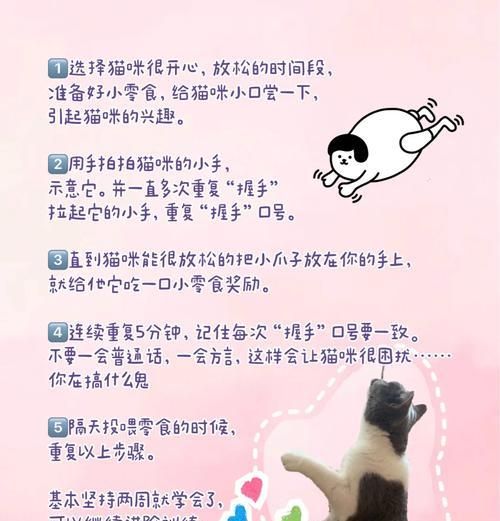 1 选择猫咪很开心，放松的时间段，
准备好小零食，给猫咪小口尝一下，
引起猫咪的兴趣。
2 用手拍拍猫咪的小手，
示意它。并一直多次重复“握手”
拉起它的小手，重复“握手”口号。
3 直到猫咪能很放松的把小爪子放在你的手上，
就给他它吃一口小零食奖励。
4 连续重复5分钟，记住每次“握手”口号要一致。
不要一会普通话，一会方言，这样会让猫咪很困扰……
你在搞什么鬼
5 隔天投喂零食的时候，
重复以上步骤。
基本坚持两周就学会了，
可以继续进阶训练